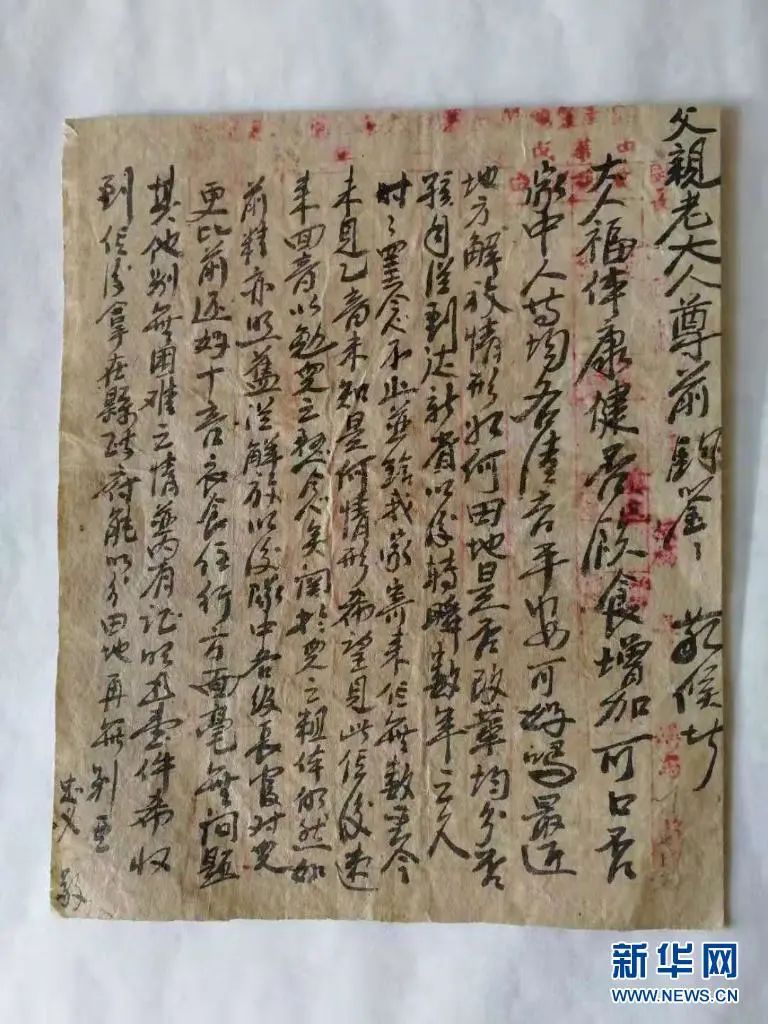 父親老大人尊前 敬候
大人福体康健否飲食增加可口否
家中人等均各清吉平安可好嗎最近
地方解放情形如何田地是否改革均分否
孩自從到达新省以後轉瞬数年之久
时々罣念不止並給我家寄来信無数至今
未見乙音未知是何情形希望見此信後速
来回音以免兒之懸念矣関於兒之粗体仍然如
前精亦照舊從解放以後隊中各级長官对兒
更比前还好十倍衣食住行方面毫無问題
其他别無困难之情茲内有证明書壹件希收
到信後拿在縣政府能以分田地再無别
敬
新华网
WWW.NEWS.CN